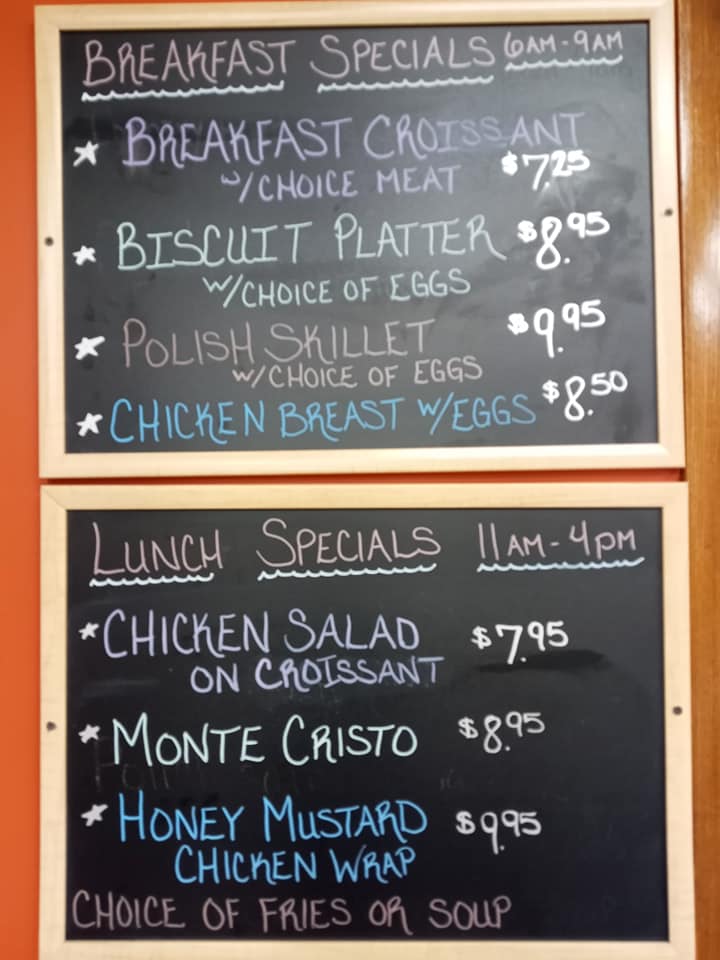 BREAKFAST SPECIALS 6AM-9AM
★ BREAKFAST CROISSANT
W/CHOICE MEAT $7.25
★ BISCUIT PLATTER $8.95
W/CHOICE OF EGGS
★ POLISH SKILLET $9.95
W/CHOICE OF EGGS
★ CHICKEN BREAST W/EGGS $8.50
LUNCH SPECIALS 11AM-4PM
★ CHICKEN SALAD $7.95
ON CROISSANT
★ MONTE CRISTO $8.95
★ HONEY MUSTARD $9.95
CHICKEN WRAP
CHOICE OF FRIES OR SOUP